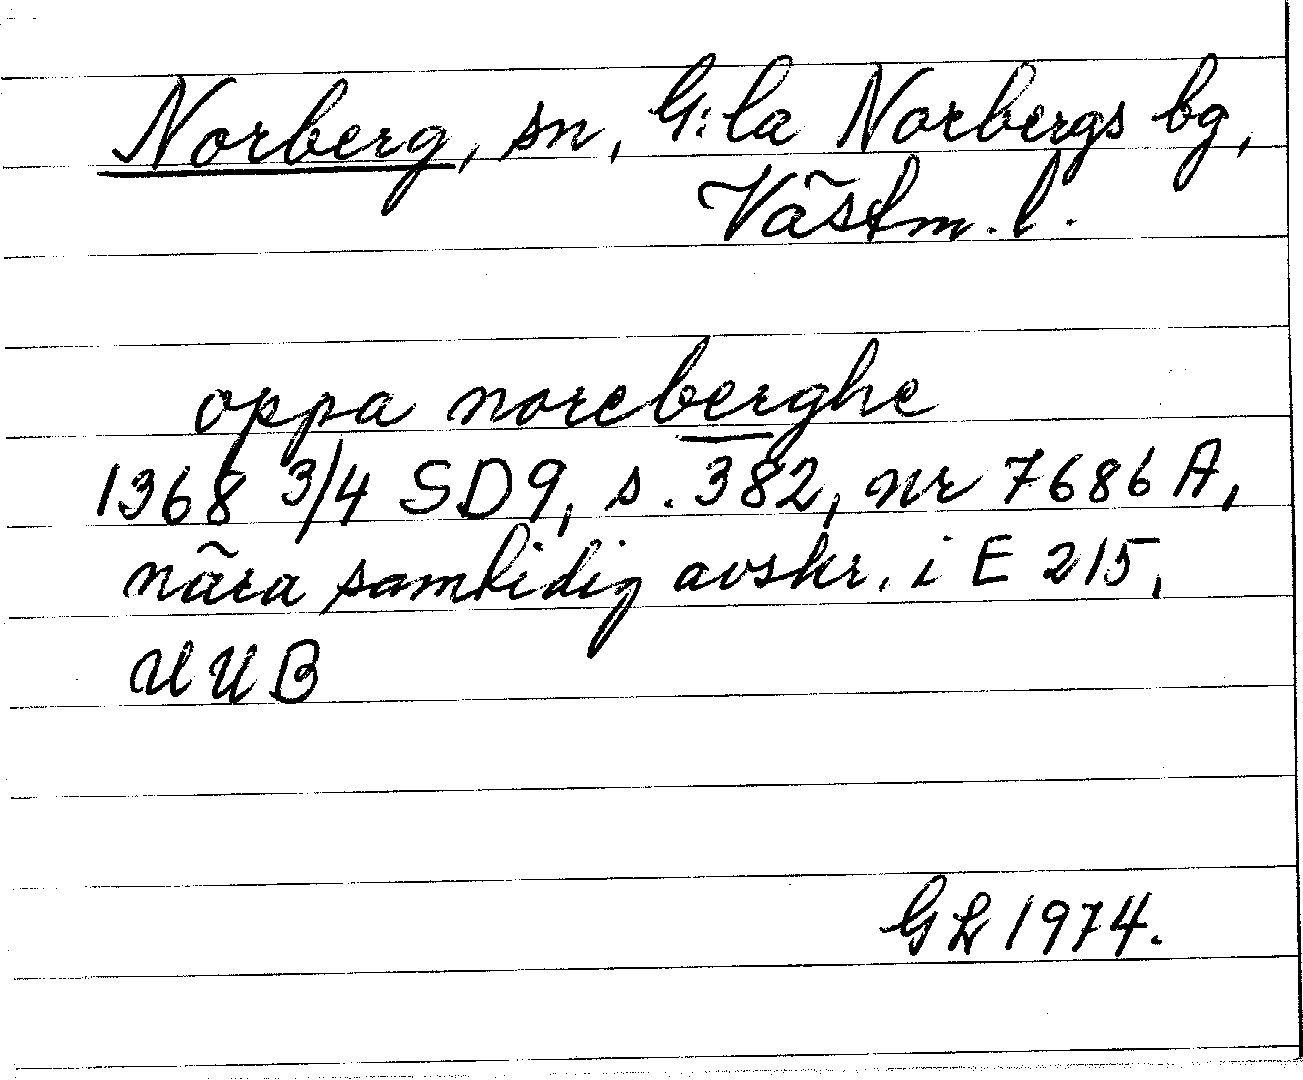 Norberg, sn, G:la Norbergs bg,
Västm. l.
oppa noreberghe
1368 3/4 SD9, s. 382, nr 7686 A,
nära samtidig avskr. i E 215,
UUB
GL 1974.